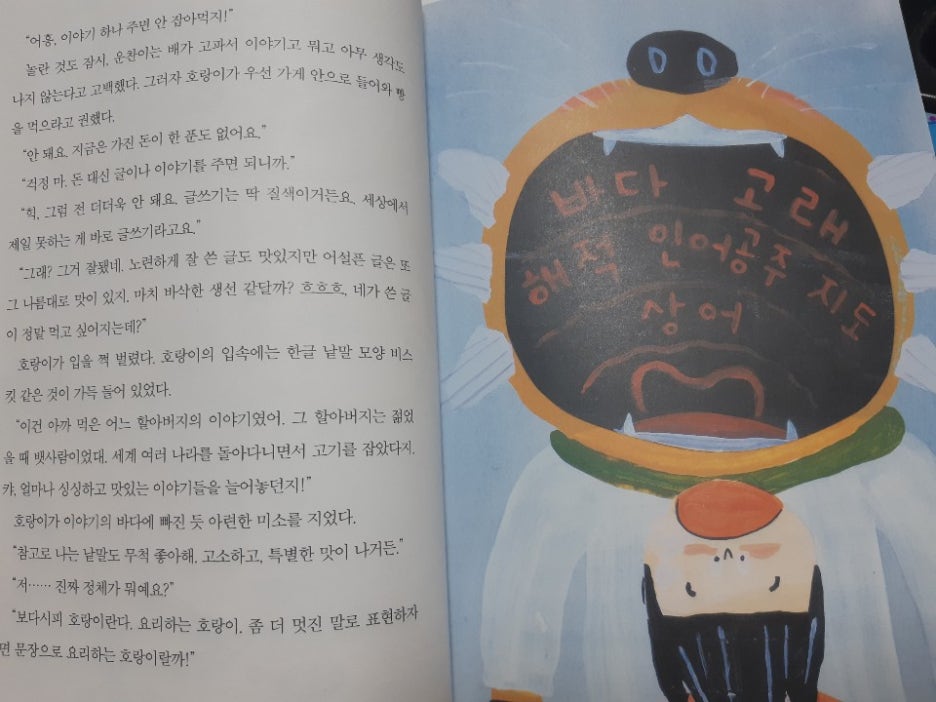 “어흥, 이야기 하나 주면 안 잡아먹지!”
놀란 것도 잠시, 운찬이는 배가 고파서 이야기고 뭐고 아무 생각도
나지 않는다고 고백했다. 그러자 호랑이가 우선 가게 안으로 들어와 빵
을 먹으라고 권했다.
“안 돼요. 지금은 가진 돈이 한 푼도 없어요.”
“걱정 마. 돈 대신 글이나 이야기를 주면 되니까.”
“헉, 그럼 전 더더욱 안 돼요. 글쓰기는 딱 질색이거든요. 세상에서
제일 못하는 게 바로 글쓰기라고요.”
“그래? 그거 잘됐네. 노련하게 잘 쓴 글도 맛있지만 어설픈 글은 또
그 나름대로 맛이 있지. 마치 바삭한 생선 같달까? 흐흐흐, 네가 쓴 글
이 정말 먹고 싶어지는데?”
호랑이가 입을 쩍 벌렸다. 호랑이의 입속에는 한글 낱말 모양 비스
킷 같은 것이 가득 들어 있었다.
“이건 아까 먹은 어느 할아버지의 이야기였어. 그 할아버지는 젊었
을 때 뱃사람이었대. 세계 여러 나라를 돌아다니면서 고기를 잡았다지.
캬, 얼마나 싱싱하고 맛있는 이야기들을 늘어놓던지!”
호랑이가 이야기의 바다에 빠진 듯 아련한 미소를 지었다.
“참고로 나는 낱말도 무척 좋아해. 고소하고, 특별한 맛이 나거든.”
“저…… 진짜 정체가 뭐예요?”
“보다시피 호랑이란다. 요리하는 호랑이. 좀 더 멋진 말로 표현하자
면 문장으로 요리하는 호랑이랄까!”
바다 고래
해적 인어공주 지도
상어